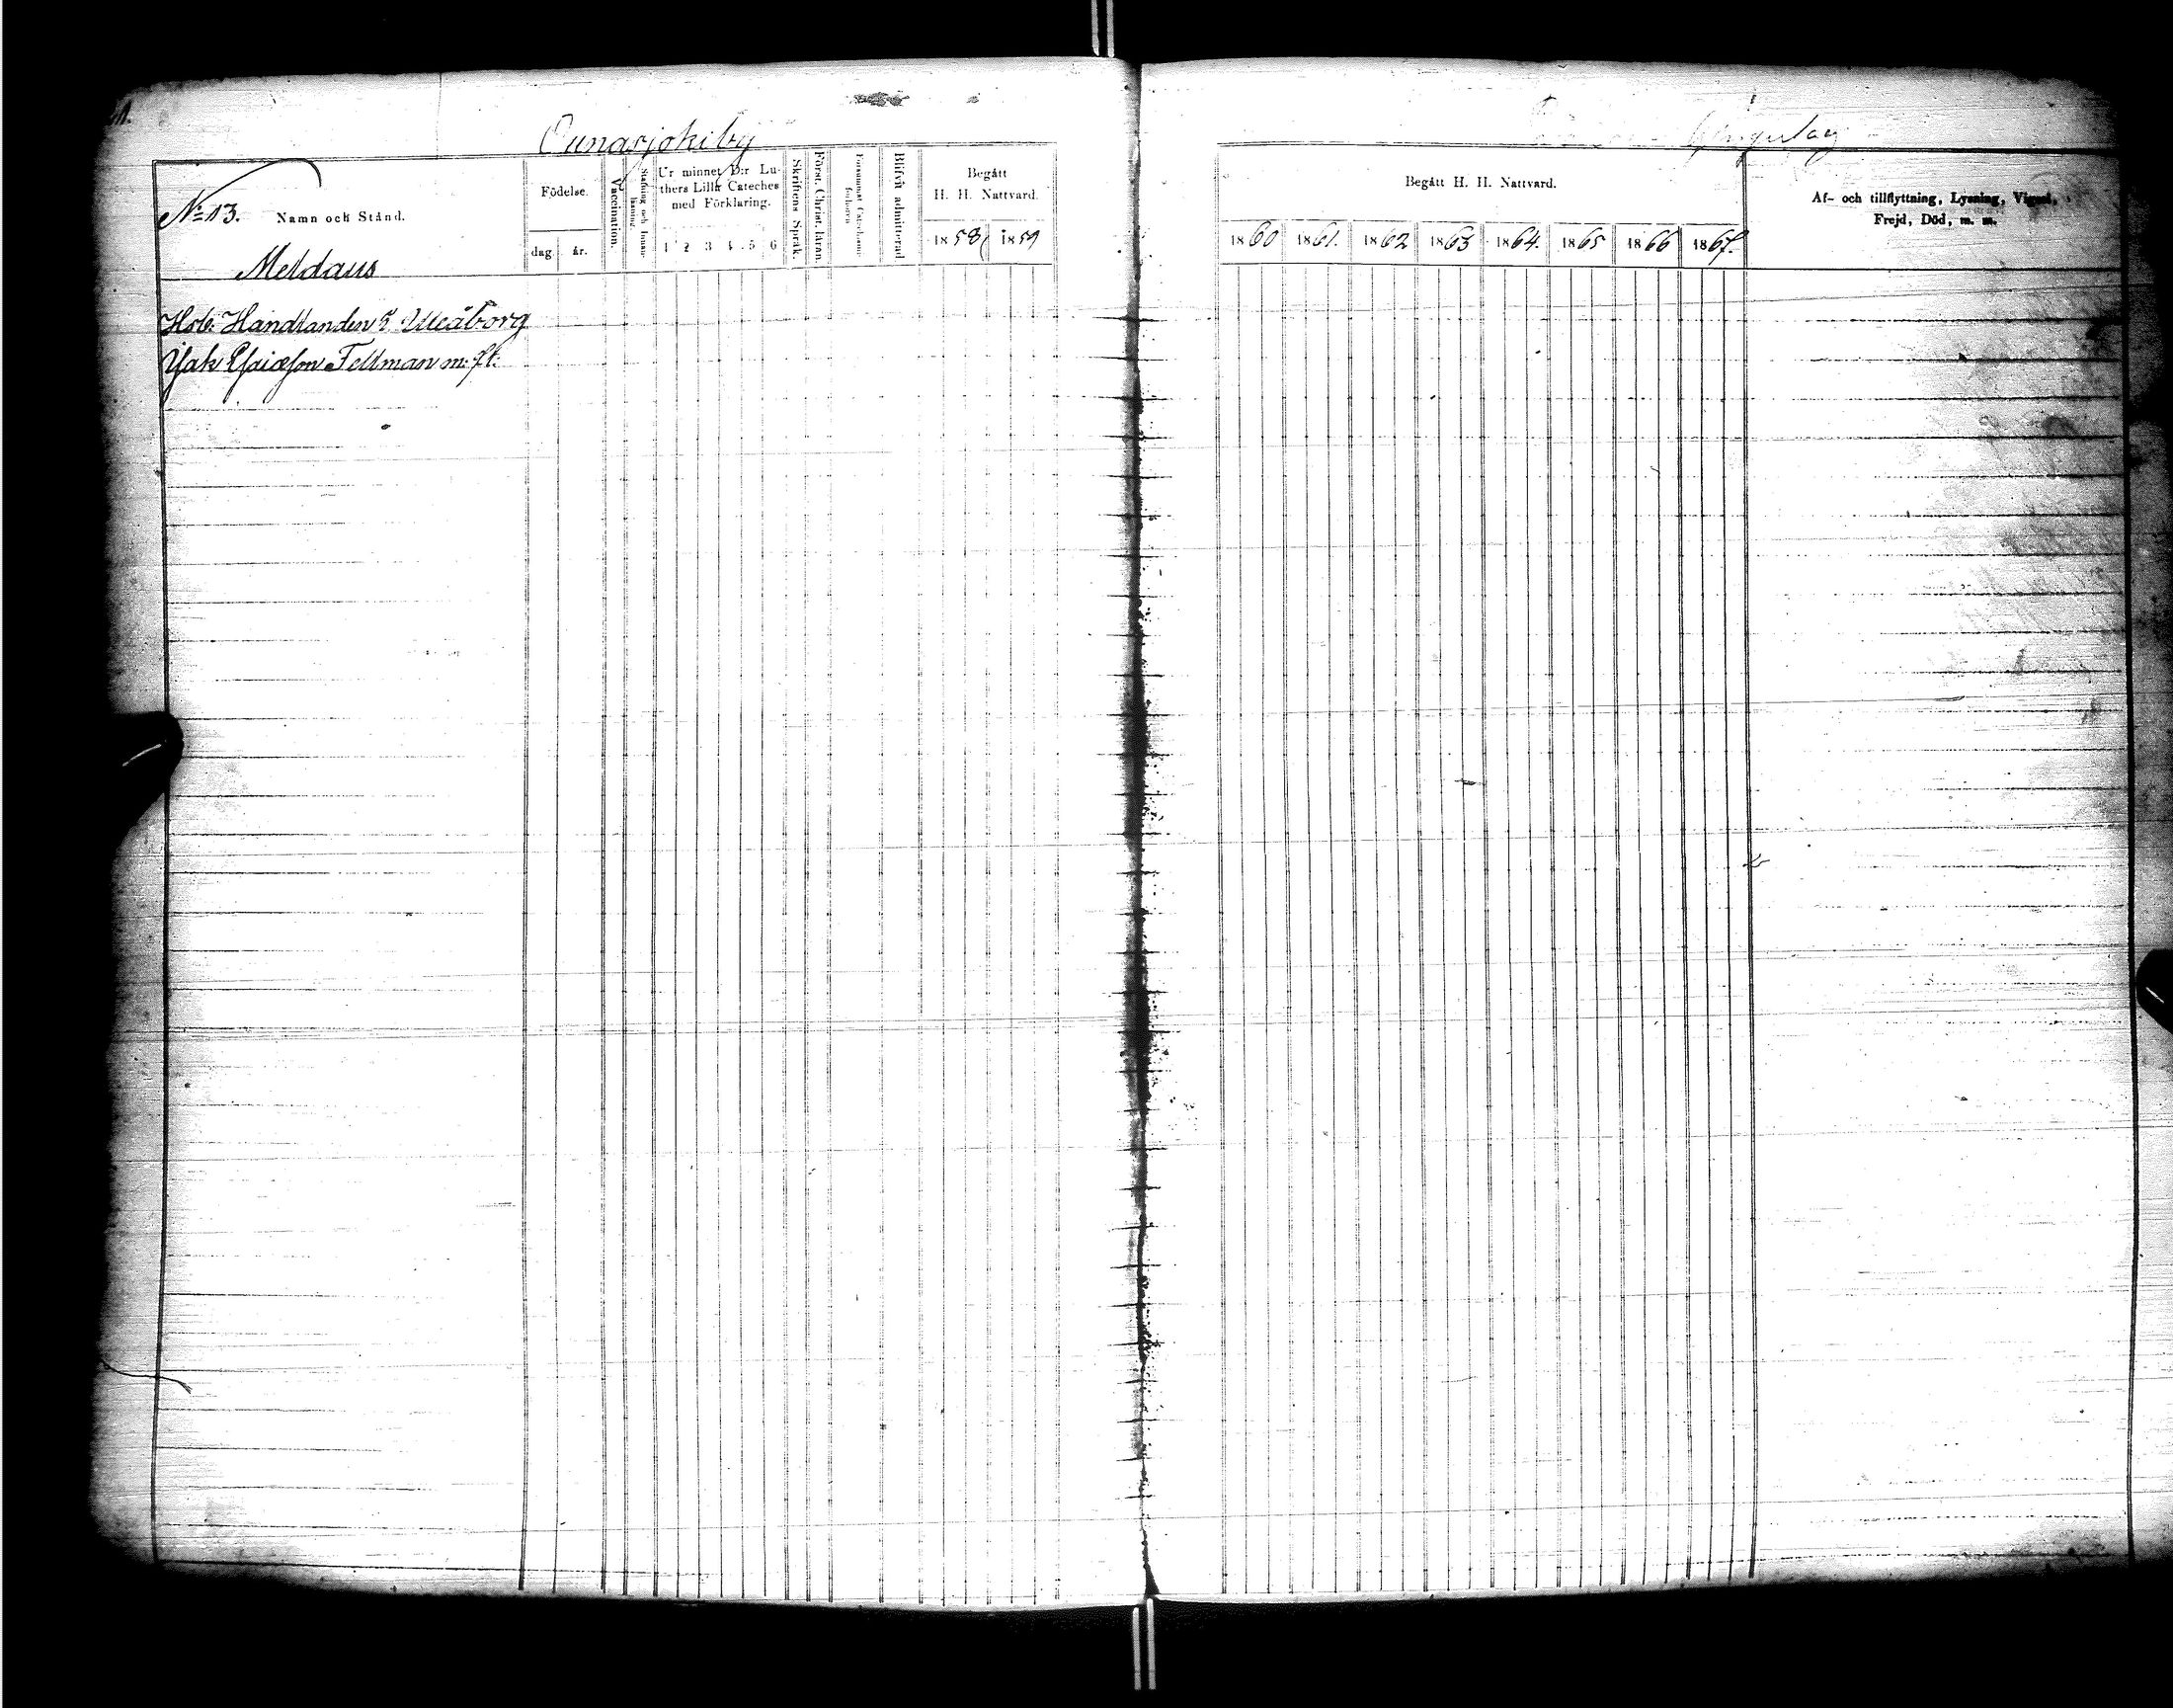 Ounasjokiby
No 13. Namn och Stånd.
Födelse.
dag. år.
Vaccination.
Stafning och Innanläsning.
Ur minnet D:r Lu-
thers Lilla Cateches
med Förklaring.
1 2 3 4 5 6
Skriftens Språk.
Först. Christ. läran.
Blifvit admitterad
Begått
H. H. Nattvard.
1858 1859
Meldaus
Hsb: Handlanden i Uleåborg
Isak Esaiæson Fellman m: fl:
Begått H. H. Nattvard.
1860 1861. 1862 1863 1864. 1865 1866 1867.
Af- och tillflyttning, Lysning, Vigsel,
Frejd, Död, m. m.